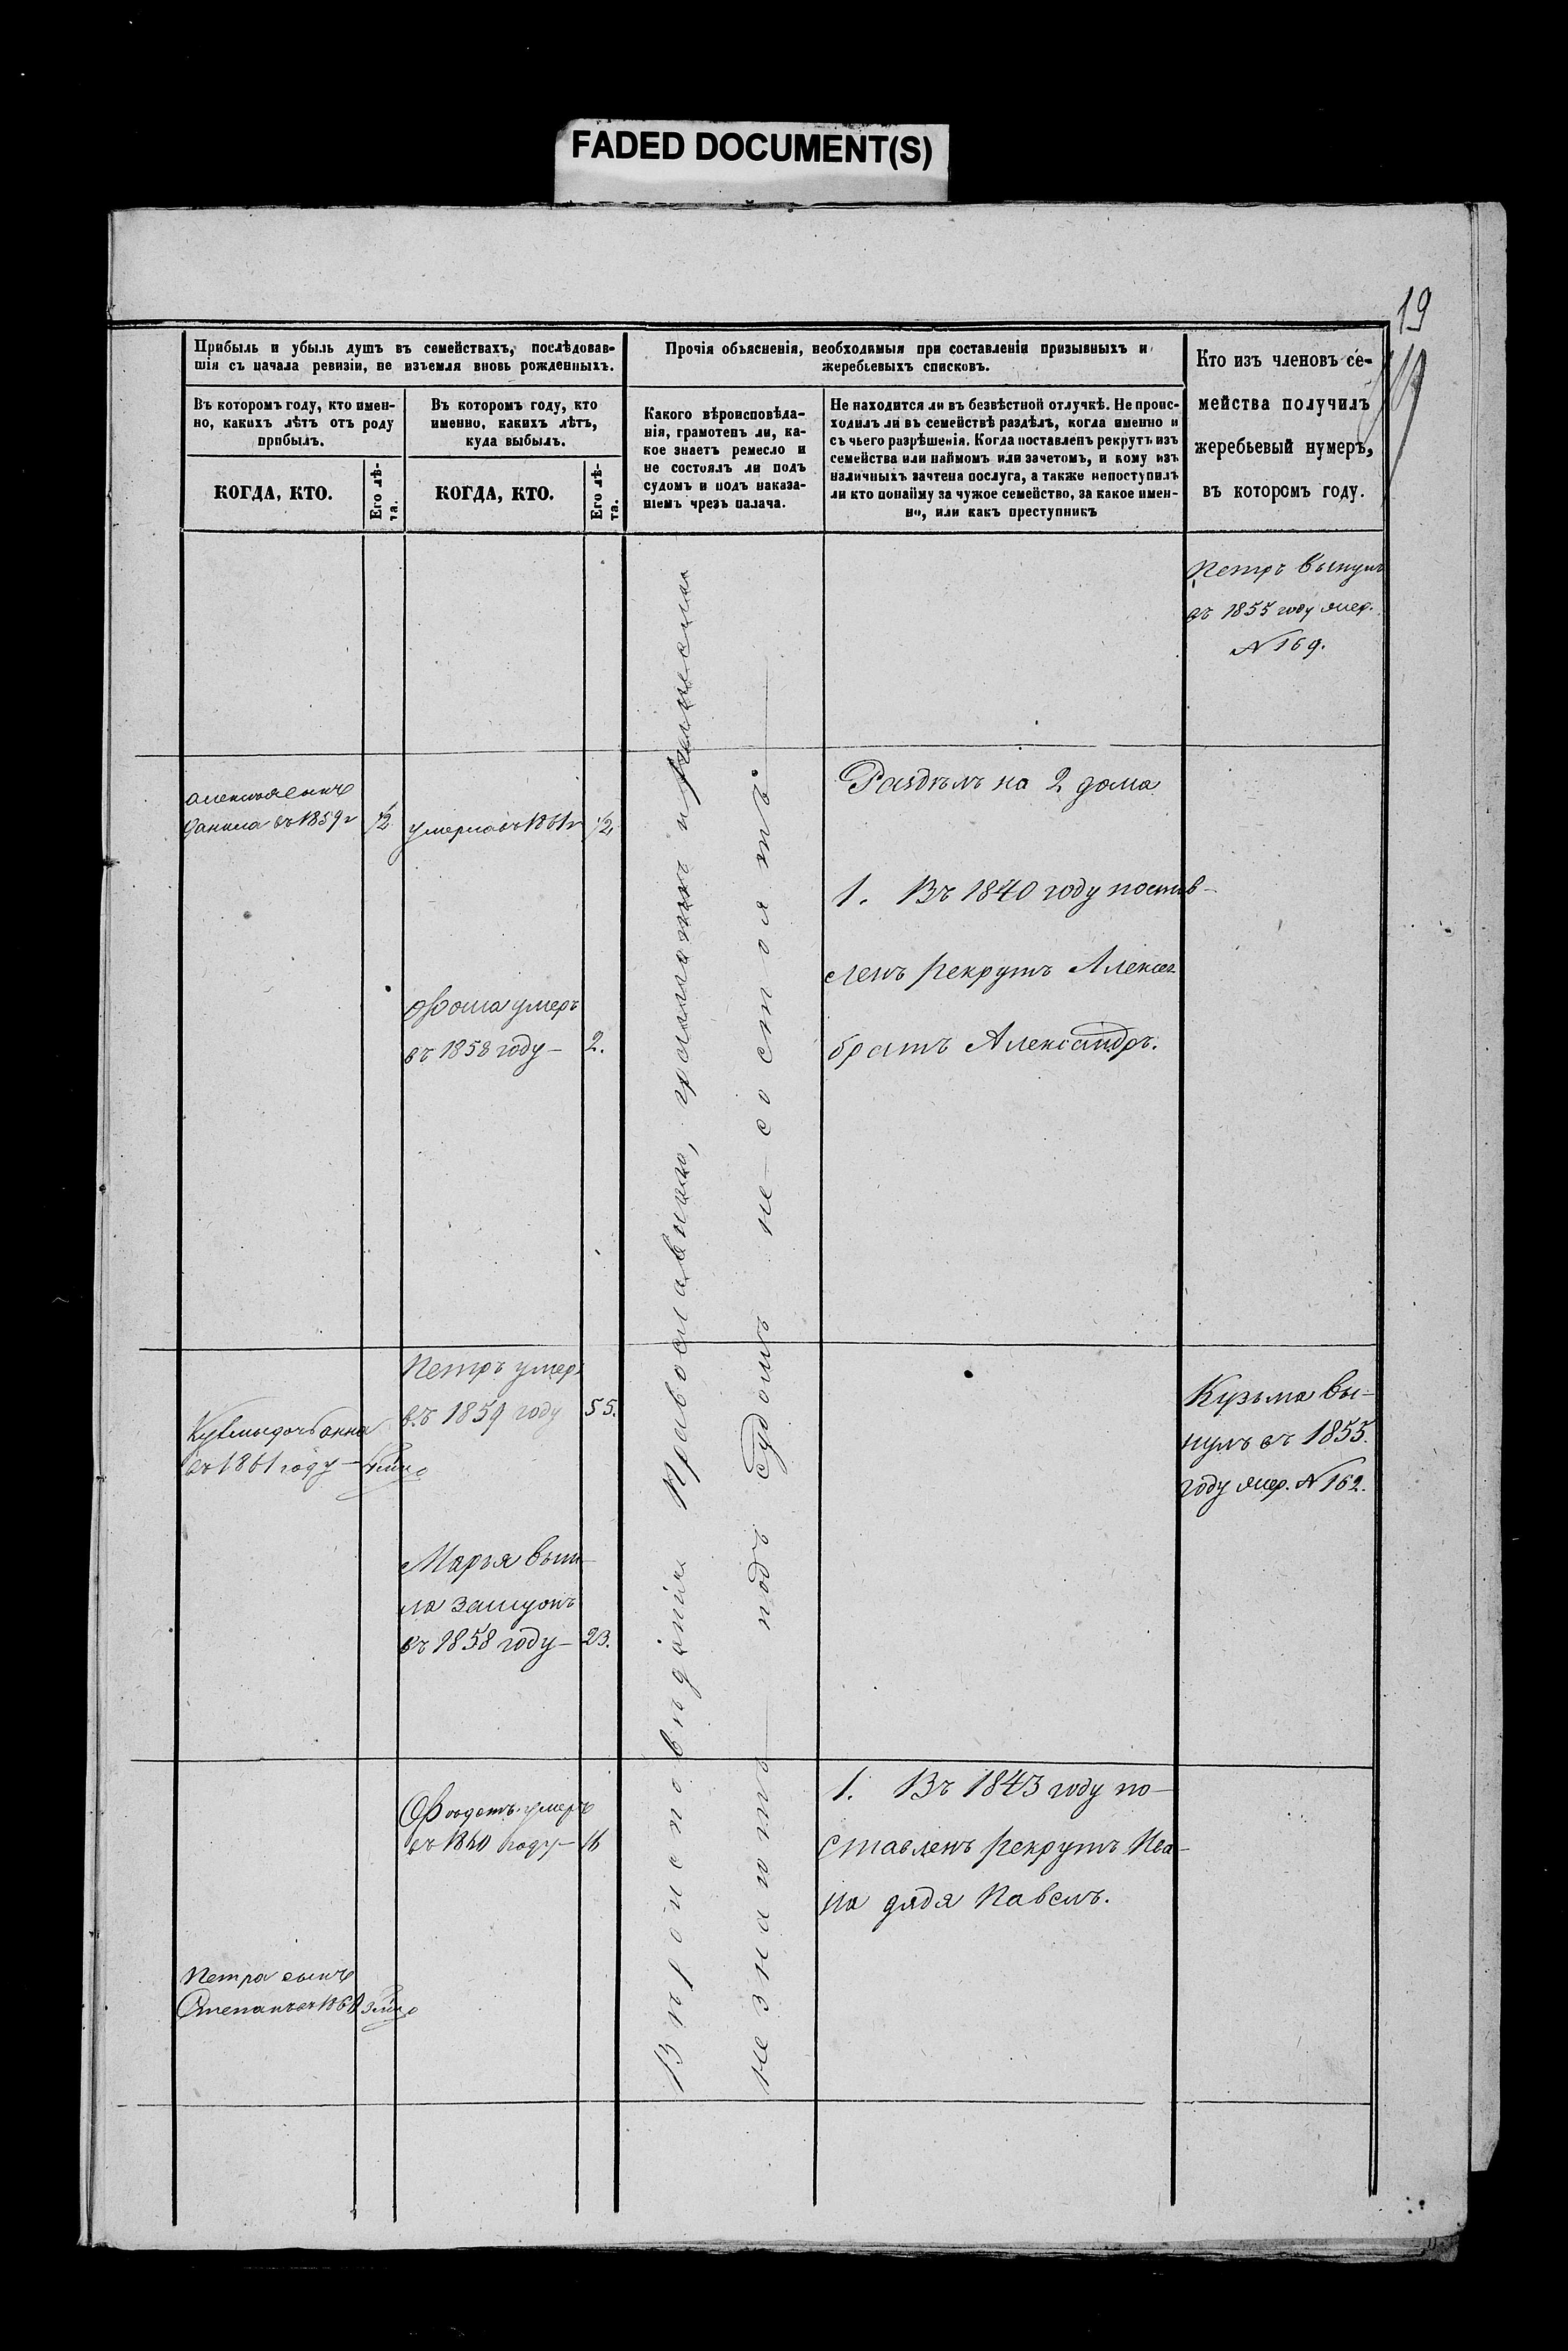 FADED DOCUMENT(S)
19
Прибыль и убыль душъ въ семействахъ, послѣдовав-
шія съ начала ревизіи, не изъемля вновь рожденныхъ.
Прочія объясненія, необходимыя при составленіи призывныхъ и
жеребьевыхъ списковъ.
Кто изъ членовъ се-
мейства получилъ
жеребьевый нумеръ,
въ которомъ году.
Въ которомъ году, кто имен-
но, какихъ лѣтъ отъ роду
прибылъ.
Въ которомъ году, кто
именно, какихъ лѣтъ,
куда выбылъ.
Какого вѣроисповѣда-
нія, грамотенъ ли, ка-
кое знаетъ ремесло и
не состоялъ ли подъ
судомъ и подъ наказа-
ніемъ чрезъ палача.
Не находится ли въ безвѣстной отлучкѣ. Не проис-
ходилъ ли въ семействѣ раздѣлъ, когда именно и
съ чьего разрѣшенія. Когда поставленъ рекрутъ изъ
семейства или наймомъ или зачетомъ, и кому изъ
наличныхъ зачтена послуга, а также непоступилъ
ли кто понайму за чужое семейство, за какое имен-
но, или какъ преступникъ
КОГДА, КТО.
Его лѣ-
та.
КОГДА, КТО.
Его лѣ-
та.
Петръ вынулъ
въ 1855 году жер.
№ 169.
Алексѣя сынъ
Данила въ 1859 г
1/2
умер въ 1861 г
1/2
Раздѣлъ на 2 дома
1. Въ 1840 году постав-
ленъ рекрутъ Алексѣя
братъ Александръ.
Фома умеръ
въ 1858 году - 2.
Вѣроисповѣданія Православнаго, грамотѣ и ремесла
не знаютъ подъ судомъ не состоятъ.
Петръ умеръ
въ 1859 году 55.
Кузьмы дочь Анна
въ 1861 году -
Кузьма вы-
нулъ въ 1855.
году жер. № 162.
Марья выш-
ла замужъ
въ 1858 году - 23.
Федотъ умеръ
въ 1860 году - 16
1. Въ 1843 году по-
ставленъ рекрутъ Ива-
на дядя Павелъ.
Петра сынъ
Степанъ въ 186